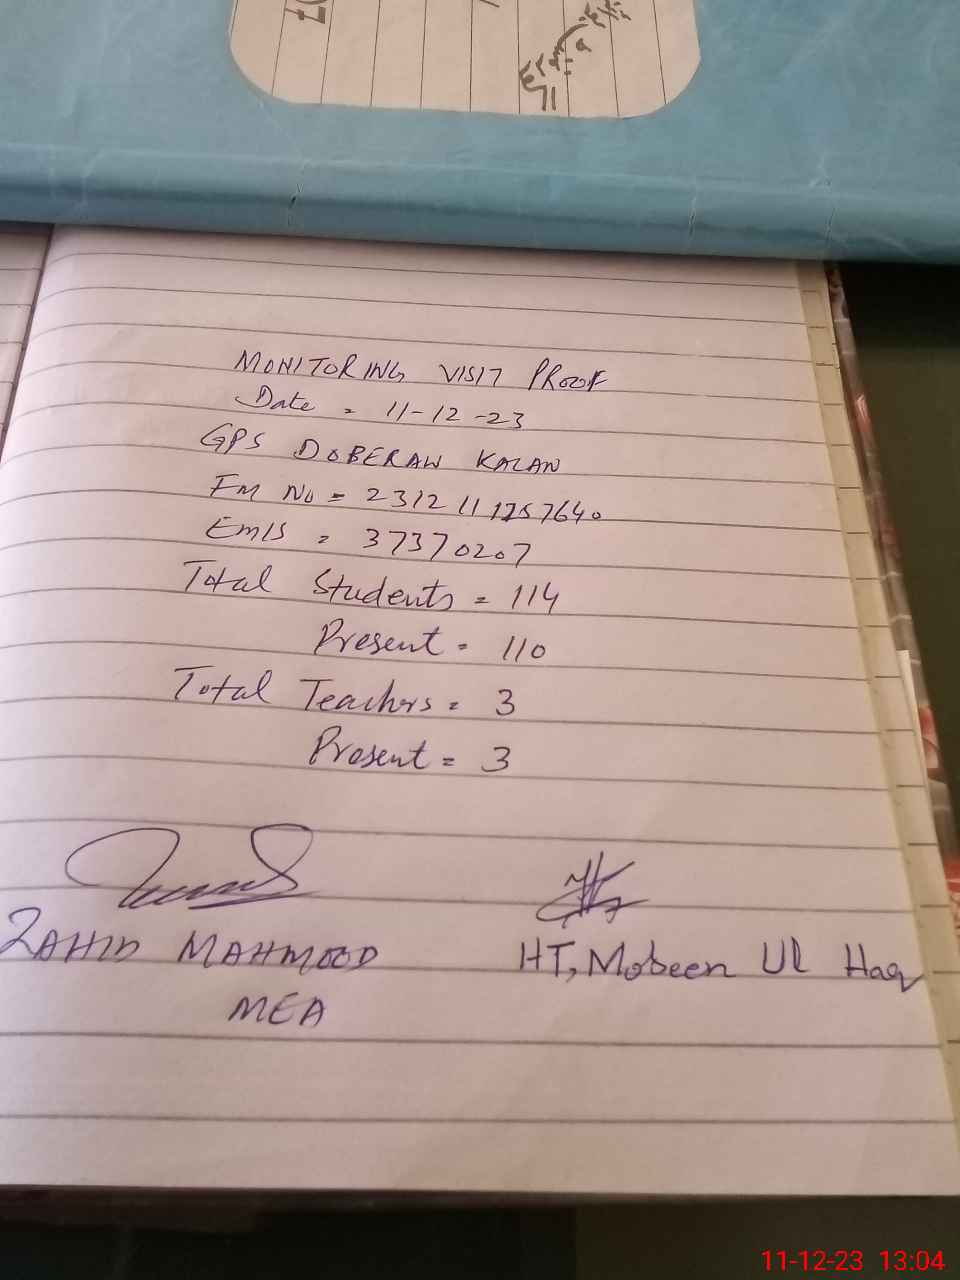 MONITORING VISIT PROOF
Date = 11-12-23
GPS DOBERAN KALAN
FM No = 2312 11 1257640
EMIS = 37370207
Total Students = 114
Present = 110
Total Teachers = 3
Present = 3
ZAHID MAHMOOD
HT, Mobeen Ul Haq
MEA
11-12-23 13:04